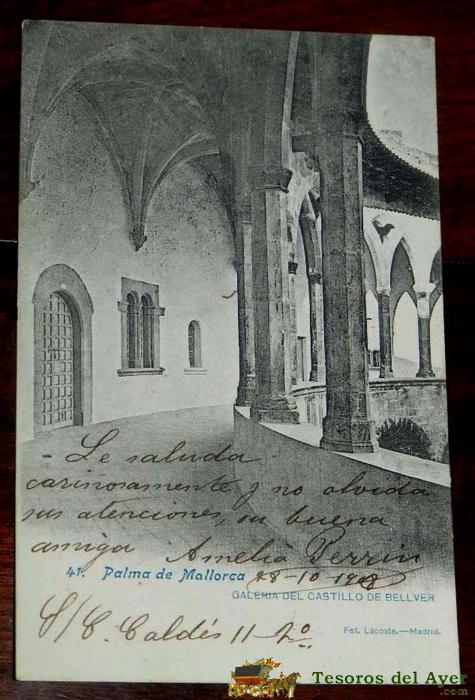 - Le saluda
cariñosamente y no olvida
sus atenciones, su buena
amiga Amelia Perrin
41. Palma de Mallorca 28-10-1908
GALERIA DEL CASTILLO DE BELLVER
S/C. Caldés 11-2º
Fot. Lacoste.—Madrid.
Tesoros del Ayer
.com